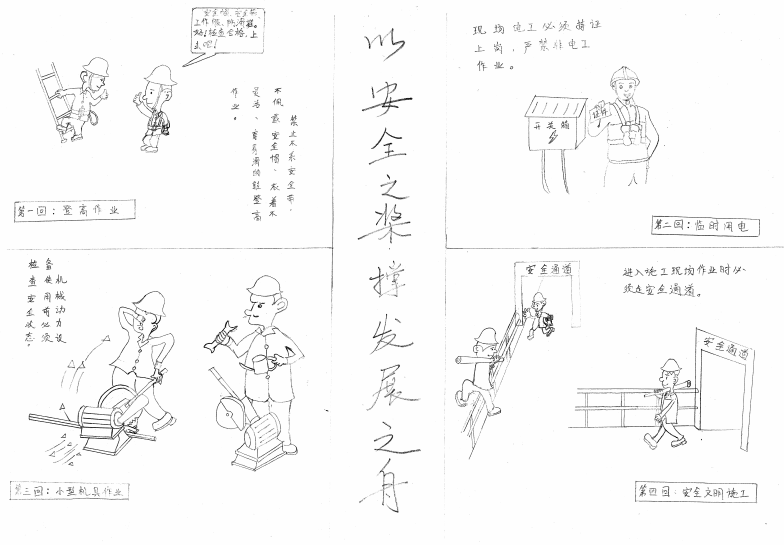 安全帽、安全带、
工作服、防滑鞋。
好!检查合格,上
去吧!
禁止不系安全带、
不佩戴安全帽、衣着不
滑的鞋登高
作业。
第一回:登高作业
以安全之桨·撑发展之舟
现场施工必须持证
上岗,严禁非电工
作业。
证件
开关箱
第二回:临时用电
机械动力设
备使用前必须
检查安全状态。
第三回:小型机具作业
安全通道
进入施工现场作业时必
须走安全通道。
安全通道
第四回:安全文明施工